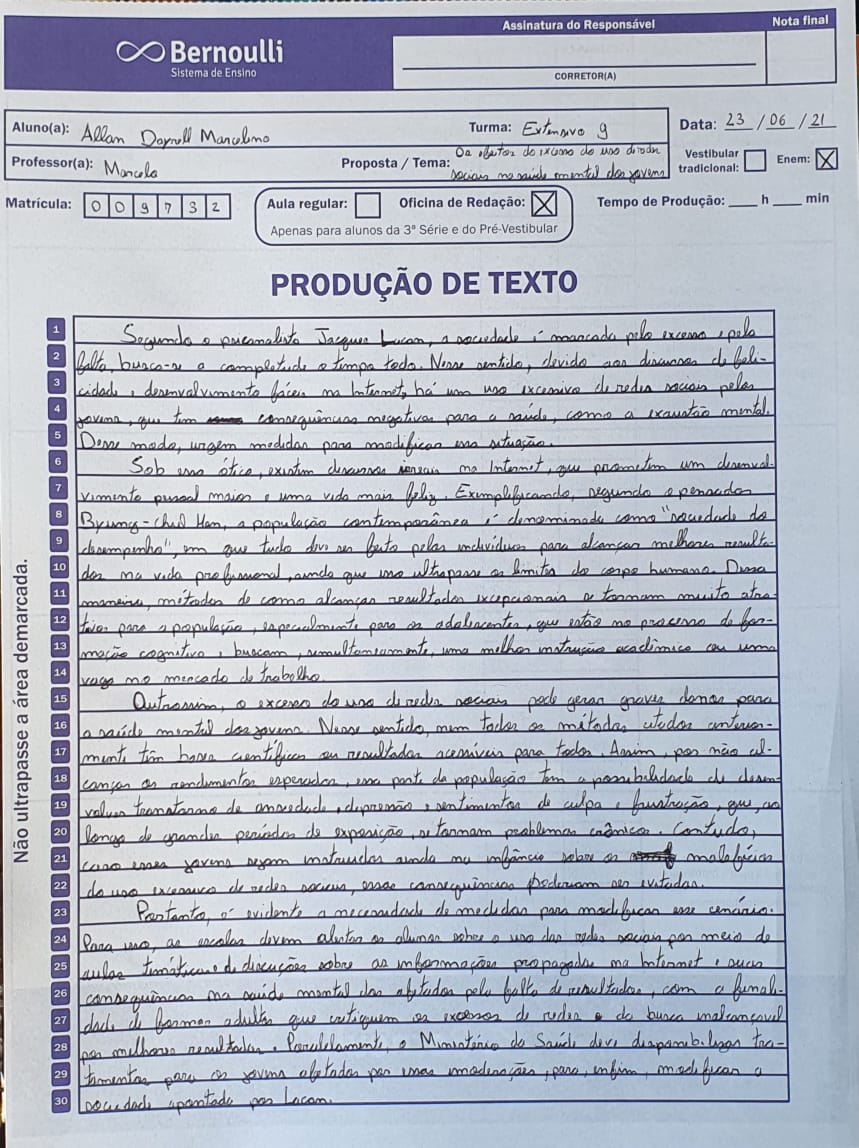 Assinatura do Responsável
Nota final
Bernoulli
Sistema de Ensino
CORRETOR(A)
Aluno(a): Allan Dayrell Marcelino
Turma: Extensivo 9
Data: 23 / 06 / 21
Professor(a): Marcela
Proposta / Tema: Os efeitos do excesso do uso de redes
sociais na saúde mental dos jovens
Vestibular tradicional:
Enem: X
Matrícula: 0 0 9 7 3 2
Aula regular:
Oficina de Redação: X
Apenas para alunos da 3ª Série e do Pré-Vestibular
Tempo de Produção: ____ h ____ min
PRODUÇÃO DE TEXTO
Não ultrapasse a área demarcada.
1 Segundo o psicanalista Jacques Lacan, a sociedade é marcada pelo excesso e pela
2 falta, busca-se a completude o tempo todo. Nesse sentido, devido aos discursos de feli-
3 cidade e desenvolvimento fáceis na Internet, há um uso excessivo de redes sociais pelos
4 jovens, que tem consequências negativas para a saúde, como a exaustão mental.
5 Desse modo, urgem medidas para modificar essa situação.
6 Sob essa ótica, existem discursos irreais na Internet, que prometem um desenvol-
7 vimento pessoal maior e uma vida mais feliz. Exemplificando, segundo o pensador
8 Byung-chul Han, a população contemporânea é denominada como "sociedade do
9 desempenho", em que tudo deve ser feito pelos indivíduos para alcançar melhores resulta-
10 dos na vida profissional, ainda que isso ultrapasse os limites do corpo humano. Dessa
11 maneira, métodos de como alcançar resultados excepcionais se tornam muito atra-
12 tivos para a população, especialmente para os adolescentes, que estão no processo de for-
13 mação cognitiva e buscam, simultaneamente, uma melhor instrução acadêmica ou uma
14 vaga no mercado de trabalho.
15 Outrossim, o excesso do uso de redes sociais pode gerar graves danos para
16 a saúde mental dos jovens. Nesse sentido, nem todos os métodos citados anterior-
17 mente têm bases científicas ou resultados acessíveis para todos. Assim, por não al-
18 cançar os rendimentos esperados, essa parte da população tem a possibilidade de desen-
19 volver transtorno de ansiedade, depressão e sentimentos de culpa e frustração, que, ao
20 longo de grandes períodos de exposição, se tornam problemas crônicos. Contudo,
21 caso esses jovens sejam instruídos ainda na infância sobre os malefícios
22 do uso excessivo de redes sociais, essas consequências poderiam ser evitadas.
23 Portanto, é evidente a necessidade de medidas para modificar esse cenário.
24 Para isso, as escolas devem alertar os alunos sobre o uso das redes sociais por meio de
25 aulas temáticas e de discuções sobre as informações propagadas na Internet e suas
26 consequências na saúde mental dos afetados pela falta de resultados, com a finali-
27 dade de formar adultos que critiquem os excessos de redes e da busca inalcançável
28 por melhores resultados. Paralelamente, o Ministério da Saúde deve disponibilizar tra-
29 tamentos para os jovens afetados por essas imoderações, para, enfim, modificar a
30 sociedade apontada por Lacan.